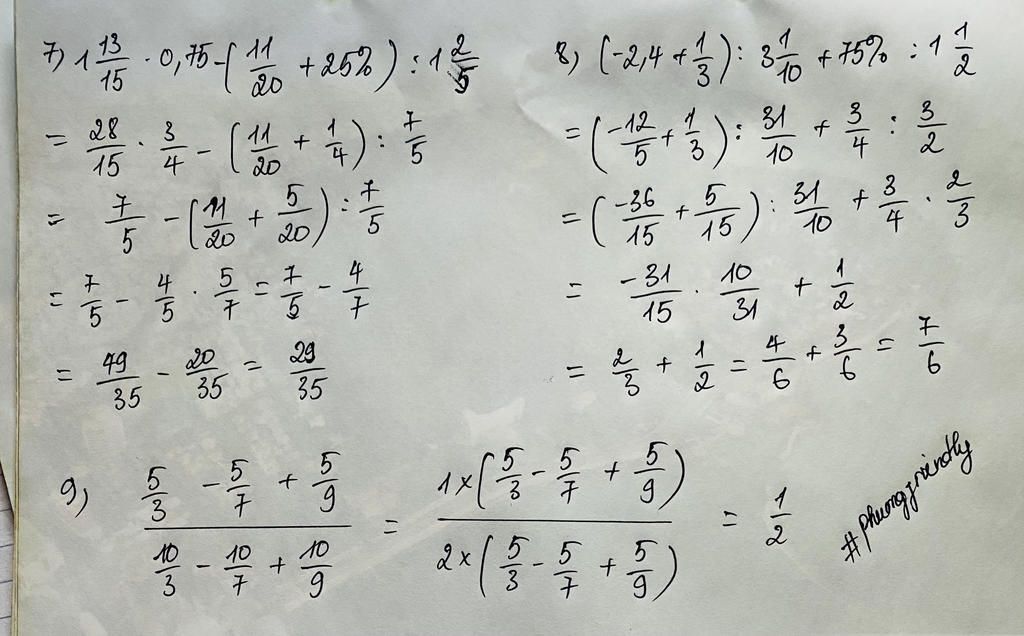 7) 1 13/15 · 0,75 - (11/20 + 25%) : 1 2/5
= 28/15 · 3/4 - (11/20 + 1/4) : 7/5
= 7/5 - (11/20 + 5/20) : 7/5
= 7/5 - 4/5 · 5/7 = 7/5 - 4/7
= 49/35 - 20/35 = 29/35
8) (-2,4 + 1/3) : 3 1/10 + 75% : 1 1/2
= (-12/5 + 1/3) : 31/10 + 3/4 : 3/2
= (-36/15 + 5/15) : 31/10 + 3/4 · 2/3
= -31/15 · 10/31 + 1/2
= 2/3 + 1/2 = 4/6 + 3/6 = 7/6
9) (5/3 - 5/7 + 5/9)/(10/3 - 10/7 + 10/9) = (1×(5/3 - 5/7 + 5/9))/(2×(5/3 - 5/7 + 5/9)) = 1/2
#phuongfriendly